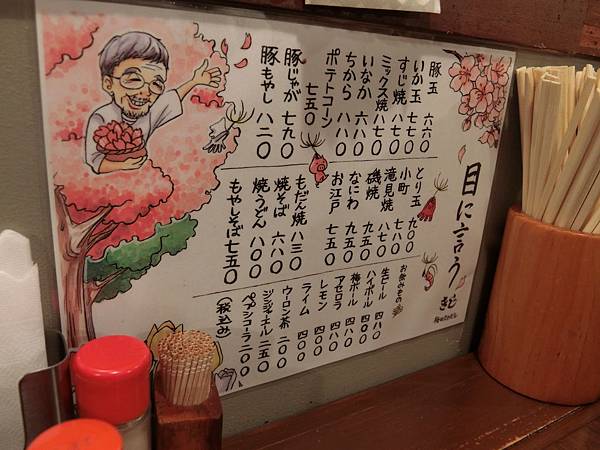 目に言う
きじ
豚玉 六六〇
いか玉 七七〇
すじ焼 七七〇
ミックス焼 八七〇
いなか 六八〇
ちから 八八〇
ポテトコーン 七五〇
豚じゃが 七九〇
豚もやし 八二〇
とり玉 九〇〇
小町 七八〇
滝見焼 八七〇
磯焼 九五〇
なにわ 九五〇
お江戸 七五〇
もだん焼 八三〇
焼そば 六八〇
焼うどん 八〇〇
もやしそば 七五〇
お飲みもの
生ビール 四八〇
ハイボール 四八〇
梅ボール 四八〇
アセロラ 四八〇
レモン 四〇〇
ライム 四〇〇
ウーロン茶 二〇〇
ジンジャエール 二五〇
ペプシコーラ 二〇〇
(税込み)